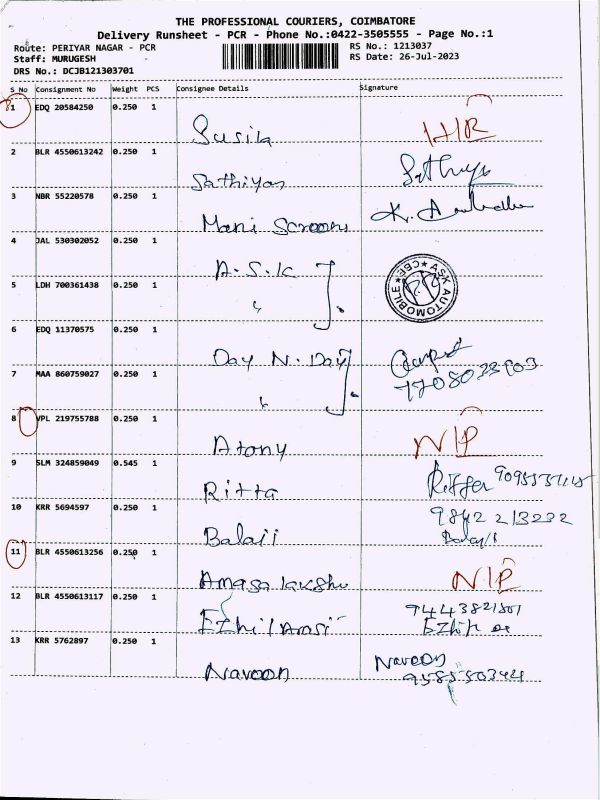 THE PROFESSIONAL COURIERS, COIMBATORE
Delivery Runsheet - PCR - Phone No.:0422-3505555 - Page No.:1
Route: PERIYAR NAGAR - PCR
RS No.: 1213037
Staff: MURUGESH
RS Date: 26-Jul-2023
DRS No.: DCJB121303701
S No Consignment No Weight PCS Consignee Details Signature
1 EDQ 20584250 0.250 1
Susila
2 BLR 4550613242 0.250 1
Sathiyan Sathiya
3 NBR 55220578 0.250 1
Mani
4 JAL 530302052 0.250 1
A.S.K
ASK AUTOMOBILE ★ CBE ★
5 LDH 700361438 0.250 1
"
6 EDQ 11370575 0.250 1
Day N. Day
7 MAA 860759027 0.250 1
"
8 VPL 219755788 0.250 1
Atony N/P
9 SLM 324859049 0.545 1
Ritta
10 KRR 5694597 0.250 1
9842 213232
Balaji
11 BLR 4550613256 0.250 1
N/P
12 BLR 4550613117 0.250 1
9443821801
Ezhil Arasi
13 KRR 5762897 0.250 1
Naveen
Naveen